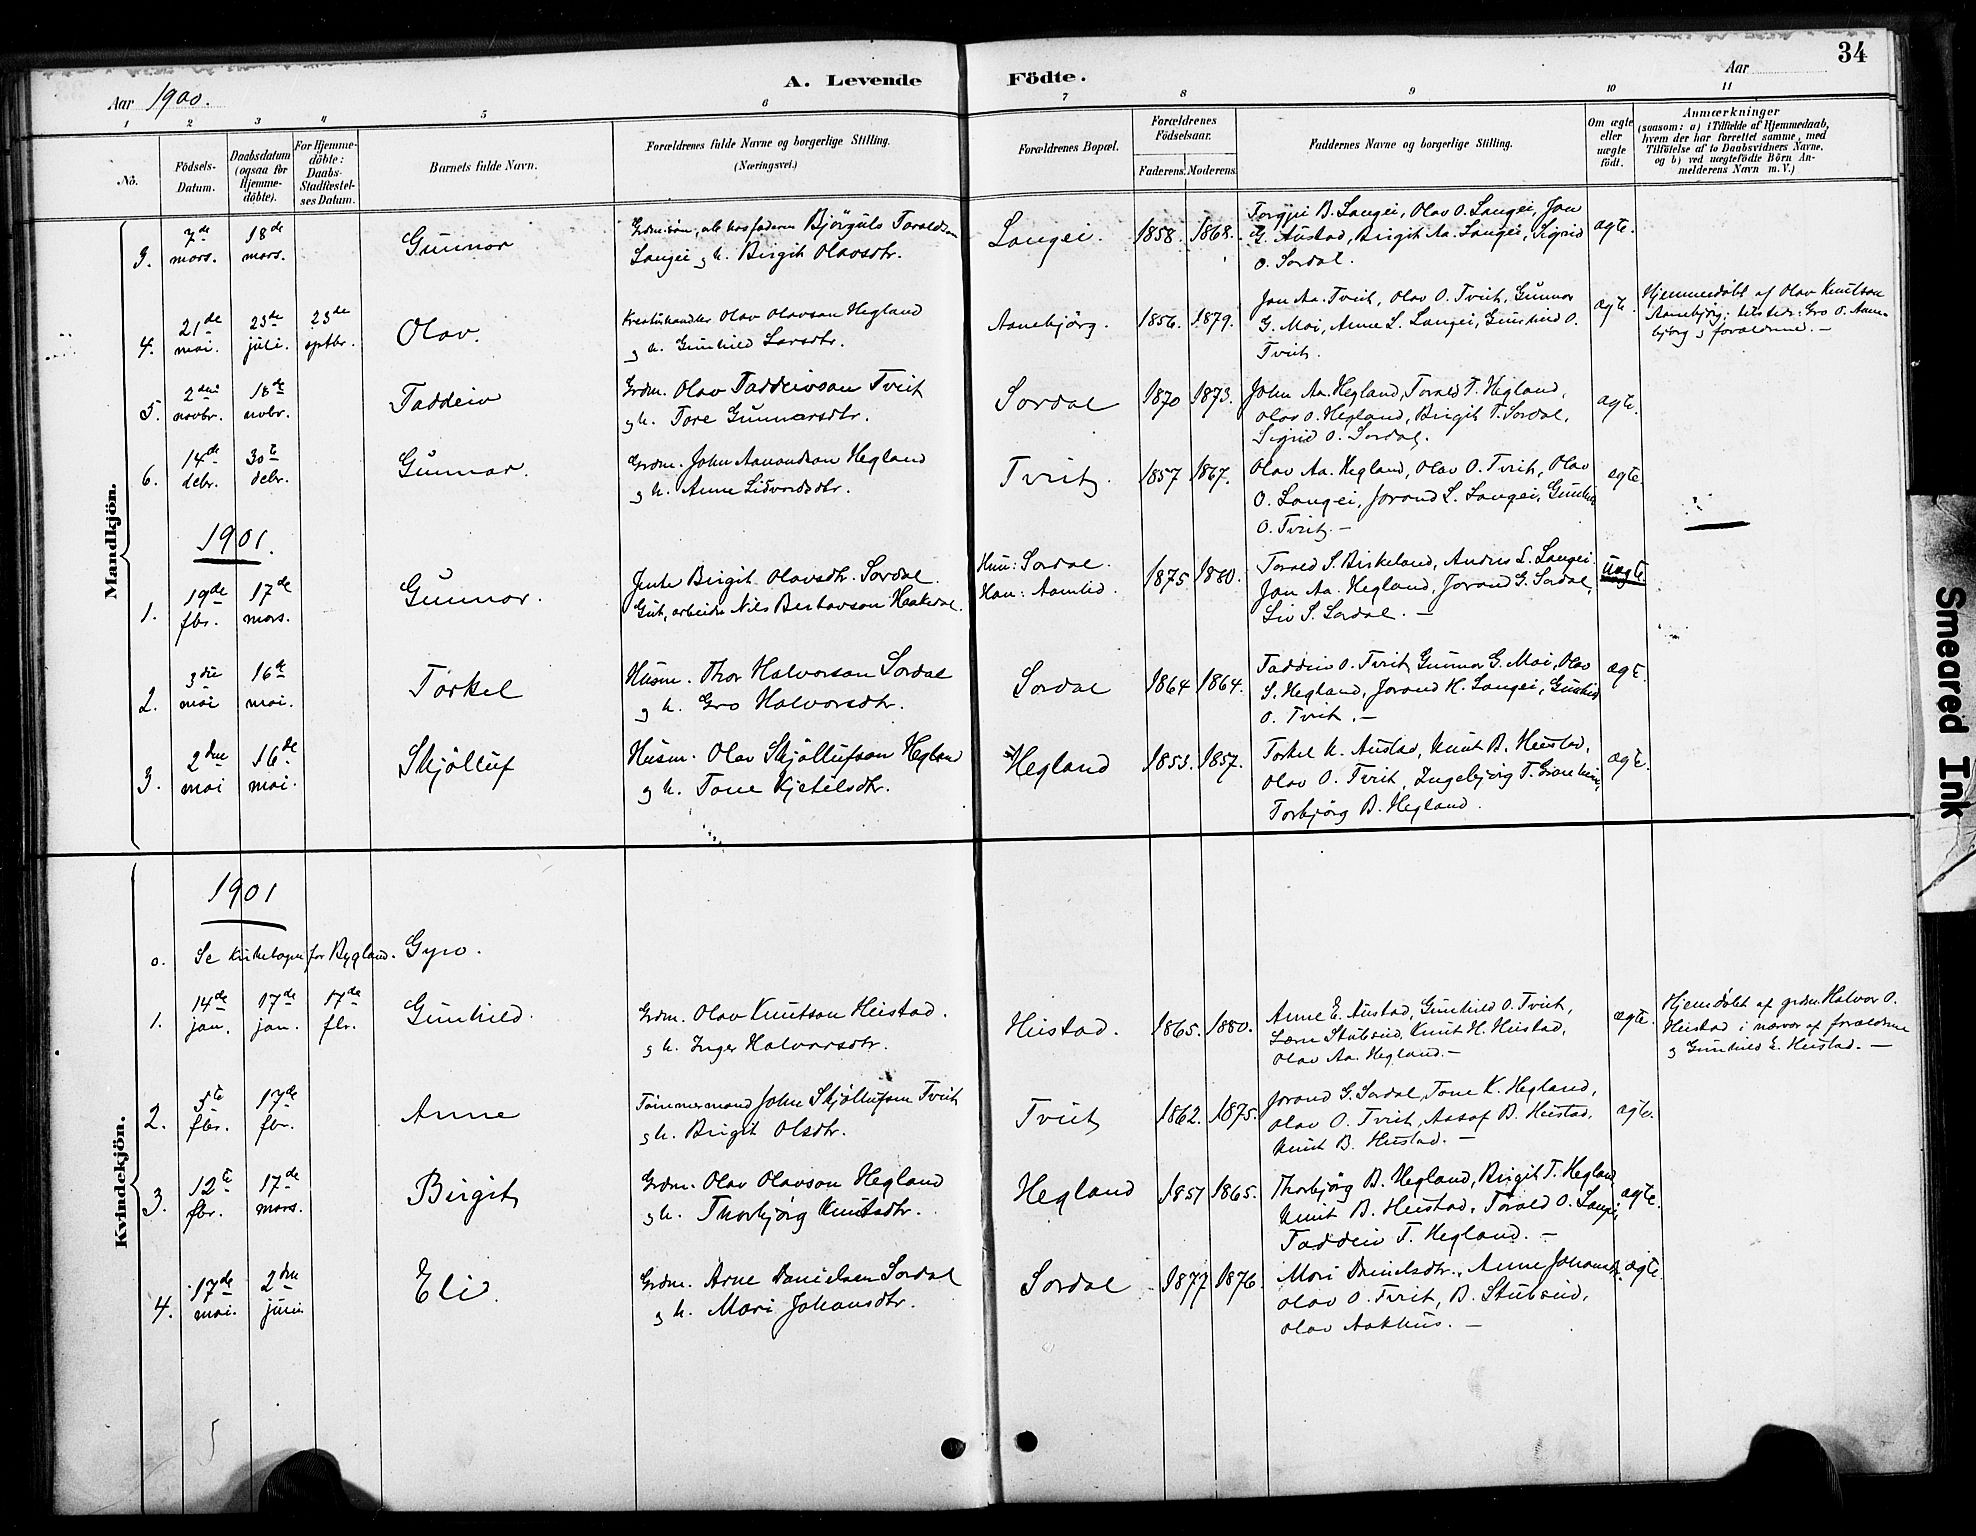 34
A. Levende Födte.
Aar 1900. Aar
1 2 3 4 5 6 7 8 9 10 11
No. Födsels-Datum. Daabsdatum (ogsaa for Hjemmedöbte). For Hjemmedöbte: Daabs-Stadfæstelses Datum. Barnets fulde Navn. Forældrenes fulde Navne og borgerlige Stilling. (Næringsvei.) Forældrenes Bopæl. Forældrenes Födselsaar. Faderens. Moderens. Faddernes Navne og borgerlige Stilling. Om ægte eller uægte födt. Anmærkninger (saasom: a) i Tilfælde af Hjemmedaab, hvem der har forrettet samme, med Tilföielse af to Daabsvidners Navne, og b) ved uægtefödte Börn Anmelderens Navn m. V.)
Mandkjön.
3. 7de mars. 18de mars. Gunnar
Bjørguls Taraldson
Langei g h. Birgit Olavsdtr.
Langei. 1858. 1868.
Torgjei B. Langei, Olav O. Langei, Jon
G. Austad, Birgit Aa. Langei, Sigrid
O. Sordal.
ægte.
4. 21de mai. 23de juli. 23de sptbr. Olav.
Kreaturhandler Olav Olavson Hegland
g h. Gunhild Larsdtr.
Aanebjørg. 1856. 1879.
Jon Aa. Tveit, Olav O. Tveit, Gunnar
G. Moi, Anne L. Langei, Gunhild O.
Tveit.
ægte.
Hjemmedøbt af Olav Knutson
Aanebjørg; tilstede: Gro O. Aane-
bjørg g forældrene. —
5. 2den novbr. 18de novbr. Taddeiv
Grdm. Olav Taddeivson Tveit
g h. Tore Gunnarsdtr.
Sordal 1870 1873.
John Aa. Hegland, Torald T. Hegland,
Olav O. Hegland, Birgit T. Sordal,
Sigrid O. Sordal.
ægte.
6. 14de debr. 30te debr. Gunnar.
Grdm. John Aanondson Hegland
g h. Anne Sidvordsdtr.
Tveit. 1857 1867.
Olav Aa. Hegland, Olav O. Tveit, Olav
O. Langei, Jorand L. Langei, Gunhild
O. Tveit. —
ægte.
1901.
1. 19de fbr. 17de mars. Gunnar.
Jente Birgit Olavsdtr. Sordal.
Gut, arbeider Nils Bertavson Haakedal.
Hun: Sordal.
Han: Aamlid.
1875 1880.
Torald S. Birkeland, Anders L. Langei
Jon Aa. Hegland, Jorand G. Sordal,
Liv S. Sordal. —
uægte.
2. 3die mai 16de mai. Torkel
Husm. Thor Halvorson Sordal
g h. Gro Halvorsdtr.
Sordal 1864 1864.
Taddeiv O. Tveit, Gunnar G. Moi, Olav
S. Hegland, Jorand H. Langei, Gunhild
O. Tveit. —
ægte.
3. 2den mai 16de mai. Skjølluf
Husm. Olav Skjøllufson Hegland
g h. Tone Kjetelsdtr.
Hegland 1853. 1857.
Torkel K. Austad, Knut B. Heistad,
Olav O. Tveit, Ingebjørg T.
Torbjørg B. Hegland.
ægte.
Kvindekjön.
1901
0. Se kirkebogen for Bygland. Gyro.
1. 14de jan. 17de jan. 17de fbr. Gunhild.
Grdm. Olav Knutson Heistad.
g h. Inger Halvorsdtr.
Heistad. 1865. 1880.
Anne E. Austad, Gunhild O. Tveit,
Stubsrud, Knut H. Heistad,
Olav Aa. Hegland. —
ægte.
Hjemdøbt af grdm. Halvor O.
Heistad i nærvær af forældrene
g Gunhild E. Heistad. —
2. 5te fbr. 17de fbr. Anne
Tømmermand John Skjøllufson Tveit
g h. Birgit Olsdtr.
Tveit 1862. 1875.
Jorand G. Sordal, Tone K. Hegland,
Olav O. Tveit, Aasof B. Heistad,
Knut B. Heistad. —
ægte.
3. 12te fbr. 17de mars. Birgit
Grdm. Olav Olavson Hegland
g h. Thorbjørg Knutsdtr.
Hegland 1857 1865.
Thorbjørg B. Hegland, Birgit T. Hegland
Knut B. Heistad, Torald O. Langei,
Taddeiv T. Hegland. —
ægte.
4. 17de mai. 2den juni. Eli.
Grdm. Arne Danielsen Sordal
g h. Mari Johansdtr.
Sordal 1877 1876.
Mari Danielsdtr., Anne Johansdtr.
Olav O. Tveit, B. Stubsrud,
Olav Aakhus. —
ægte.
Smeared Ink